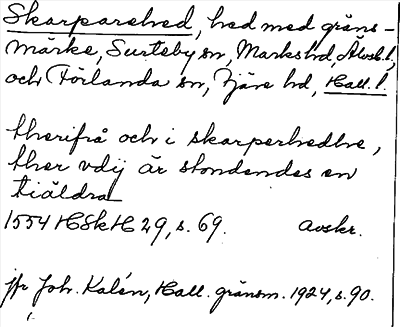 Skarparehed, hed med gräns-
märke, Surteby sn, Marks hd, Älvsb. l,
och Förlanda sn, Fjäre hd, Hall. l.
therifrå och i skarperhedhe,
ther vdij är stondendes en
tiäldra
1554 HSkH 29, s. 69. avskr.
jfr Joh. Kalén, Hall. gränsm. 1924, s. 90.